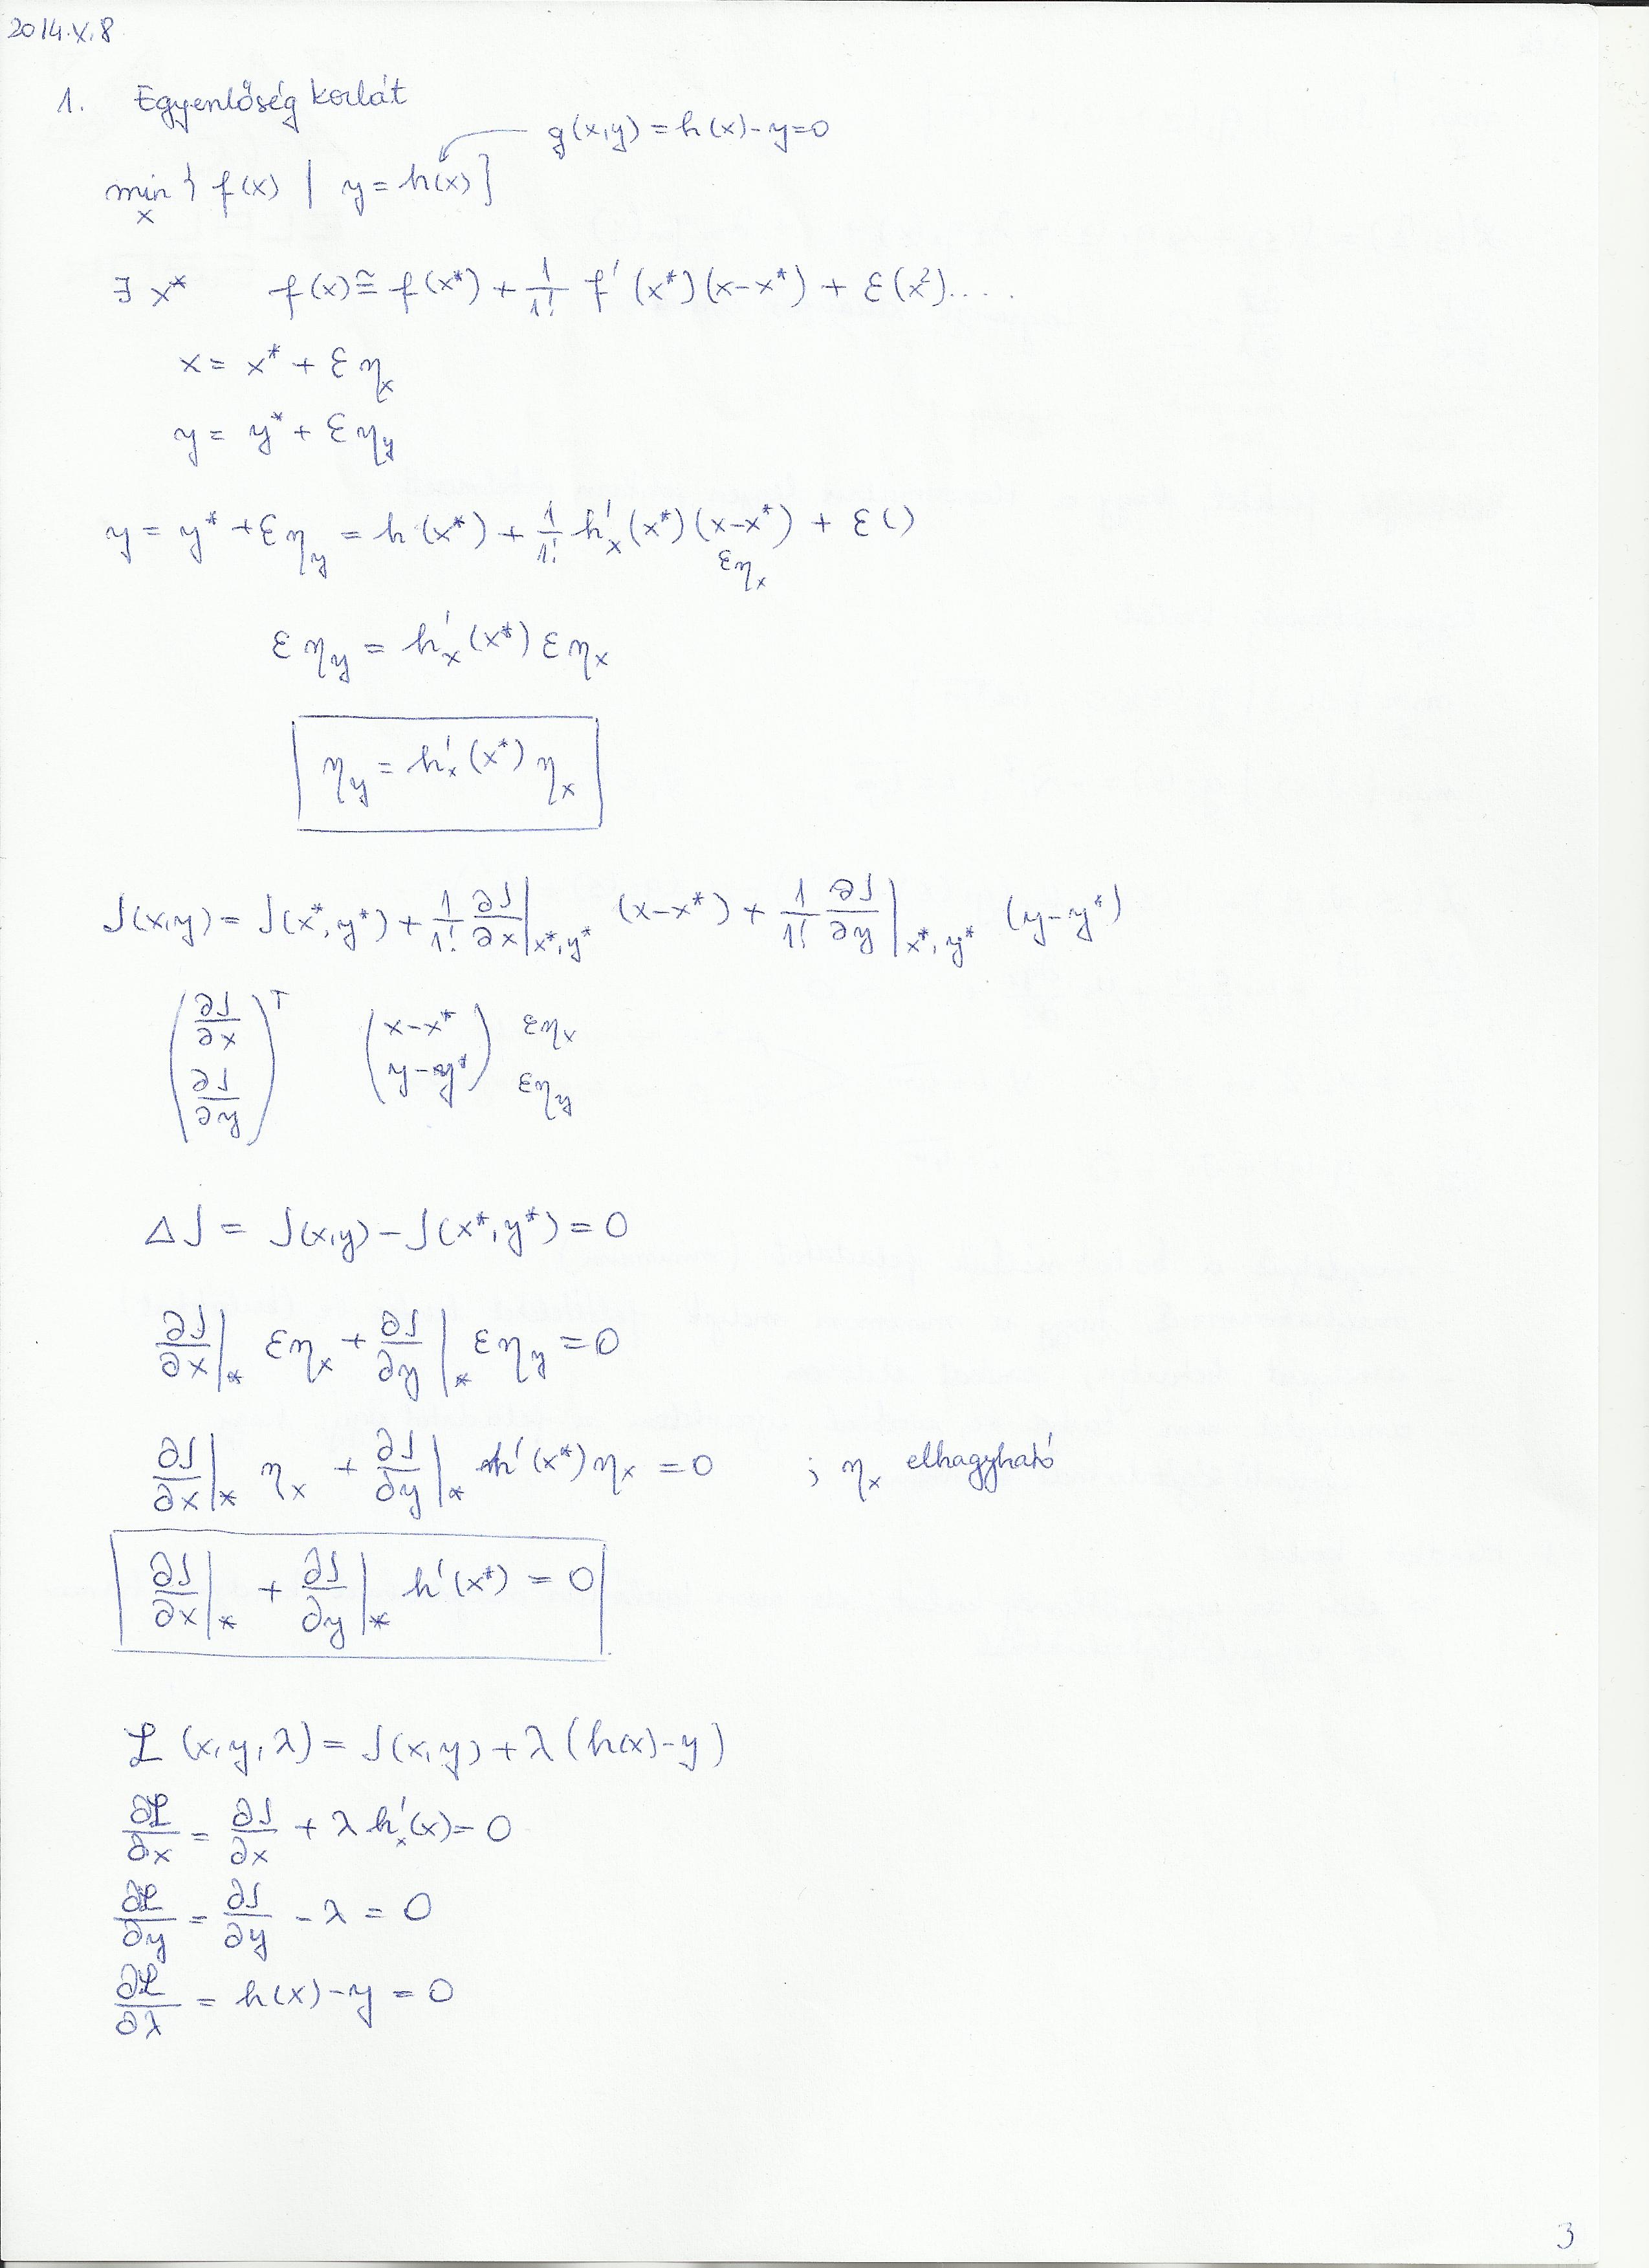 2014.X.8
1. Egyenlőség korlát
g(x,y) = h(x) - y = 0
min_x { f(x) | y = h(x) }
∃ x* f(x) ≅ f(x*) + 1/1! f'(x*)(x-x*) + ε(x²)....
x = x* + ε η_x
y = y* + ε η_y
y = y* + ε η_y = h(x*) + 1/1! h'_x(x*)(x-x*) + ε( )
εη_x
ε η_y = h'_x(x*) ε η_x
η_y = h'_x(x*) η_x
J(x,y) = J(x*,y*) + 1/1! ∂J/∂x |_x*,y* (x-x*) + 1/1! ∂J/∂y |_x*,y* (y-y*)
(∂J/∂x ∂J/∂y)^T (x-x* y-y*) εη_x εη_y
ΔJ = J(x,y) - J(x*,y*) = 0
∂J/∂x |_* εη_x + ∂J/∂y |_* εη_y = 0
∂J/∂x |_* η_x + ∂J/∂y |_* h'(x*) η_x = 0 ; η_x elhagyható
∂J/∂x |_* + ∂J/∂y |_* h'(x*) = 0
ℒ(x,y,λ) = J(x,y) + λ(h(x)-y)
∂ℒ/∂x = ∂J/∂x + λ h'_x(x) = 0
∂ℒ/∂y = ∂J/∂y - λ = 0
∂ℒ/∂λ = h(x) - y = 0
3